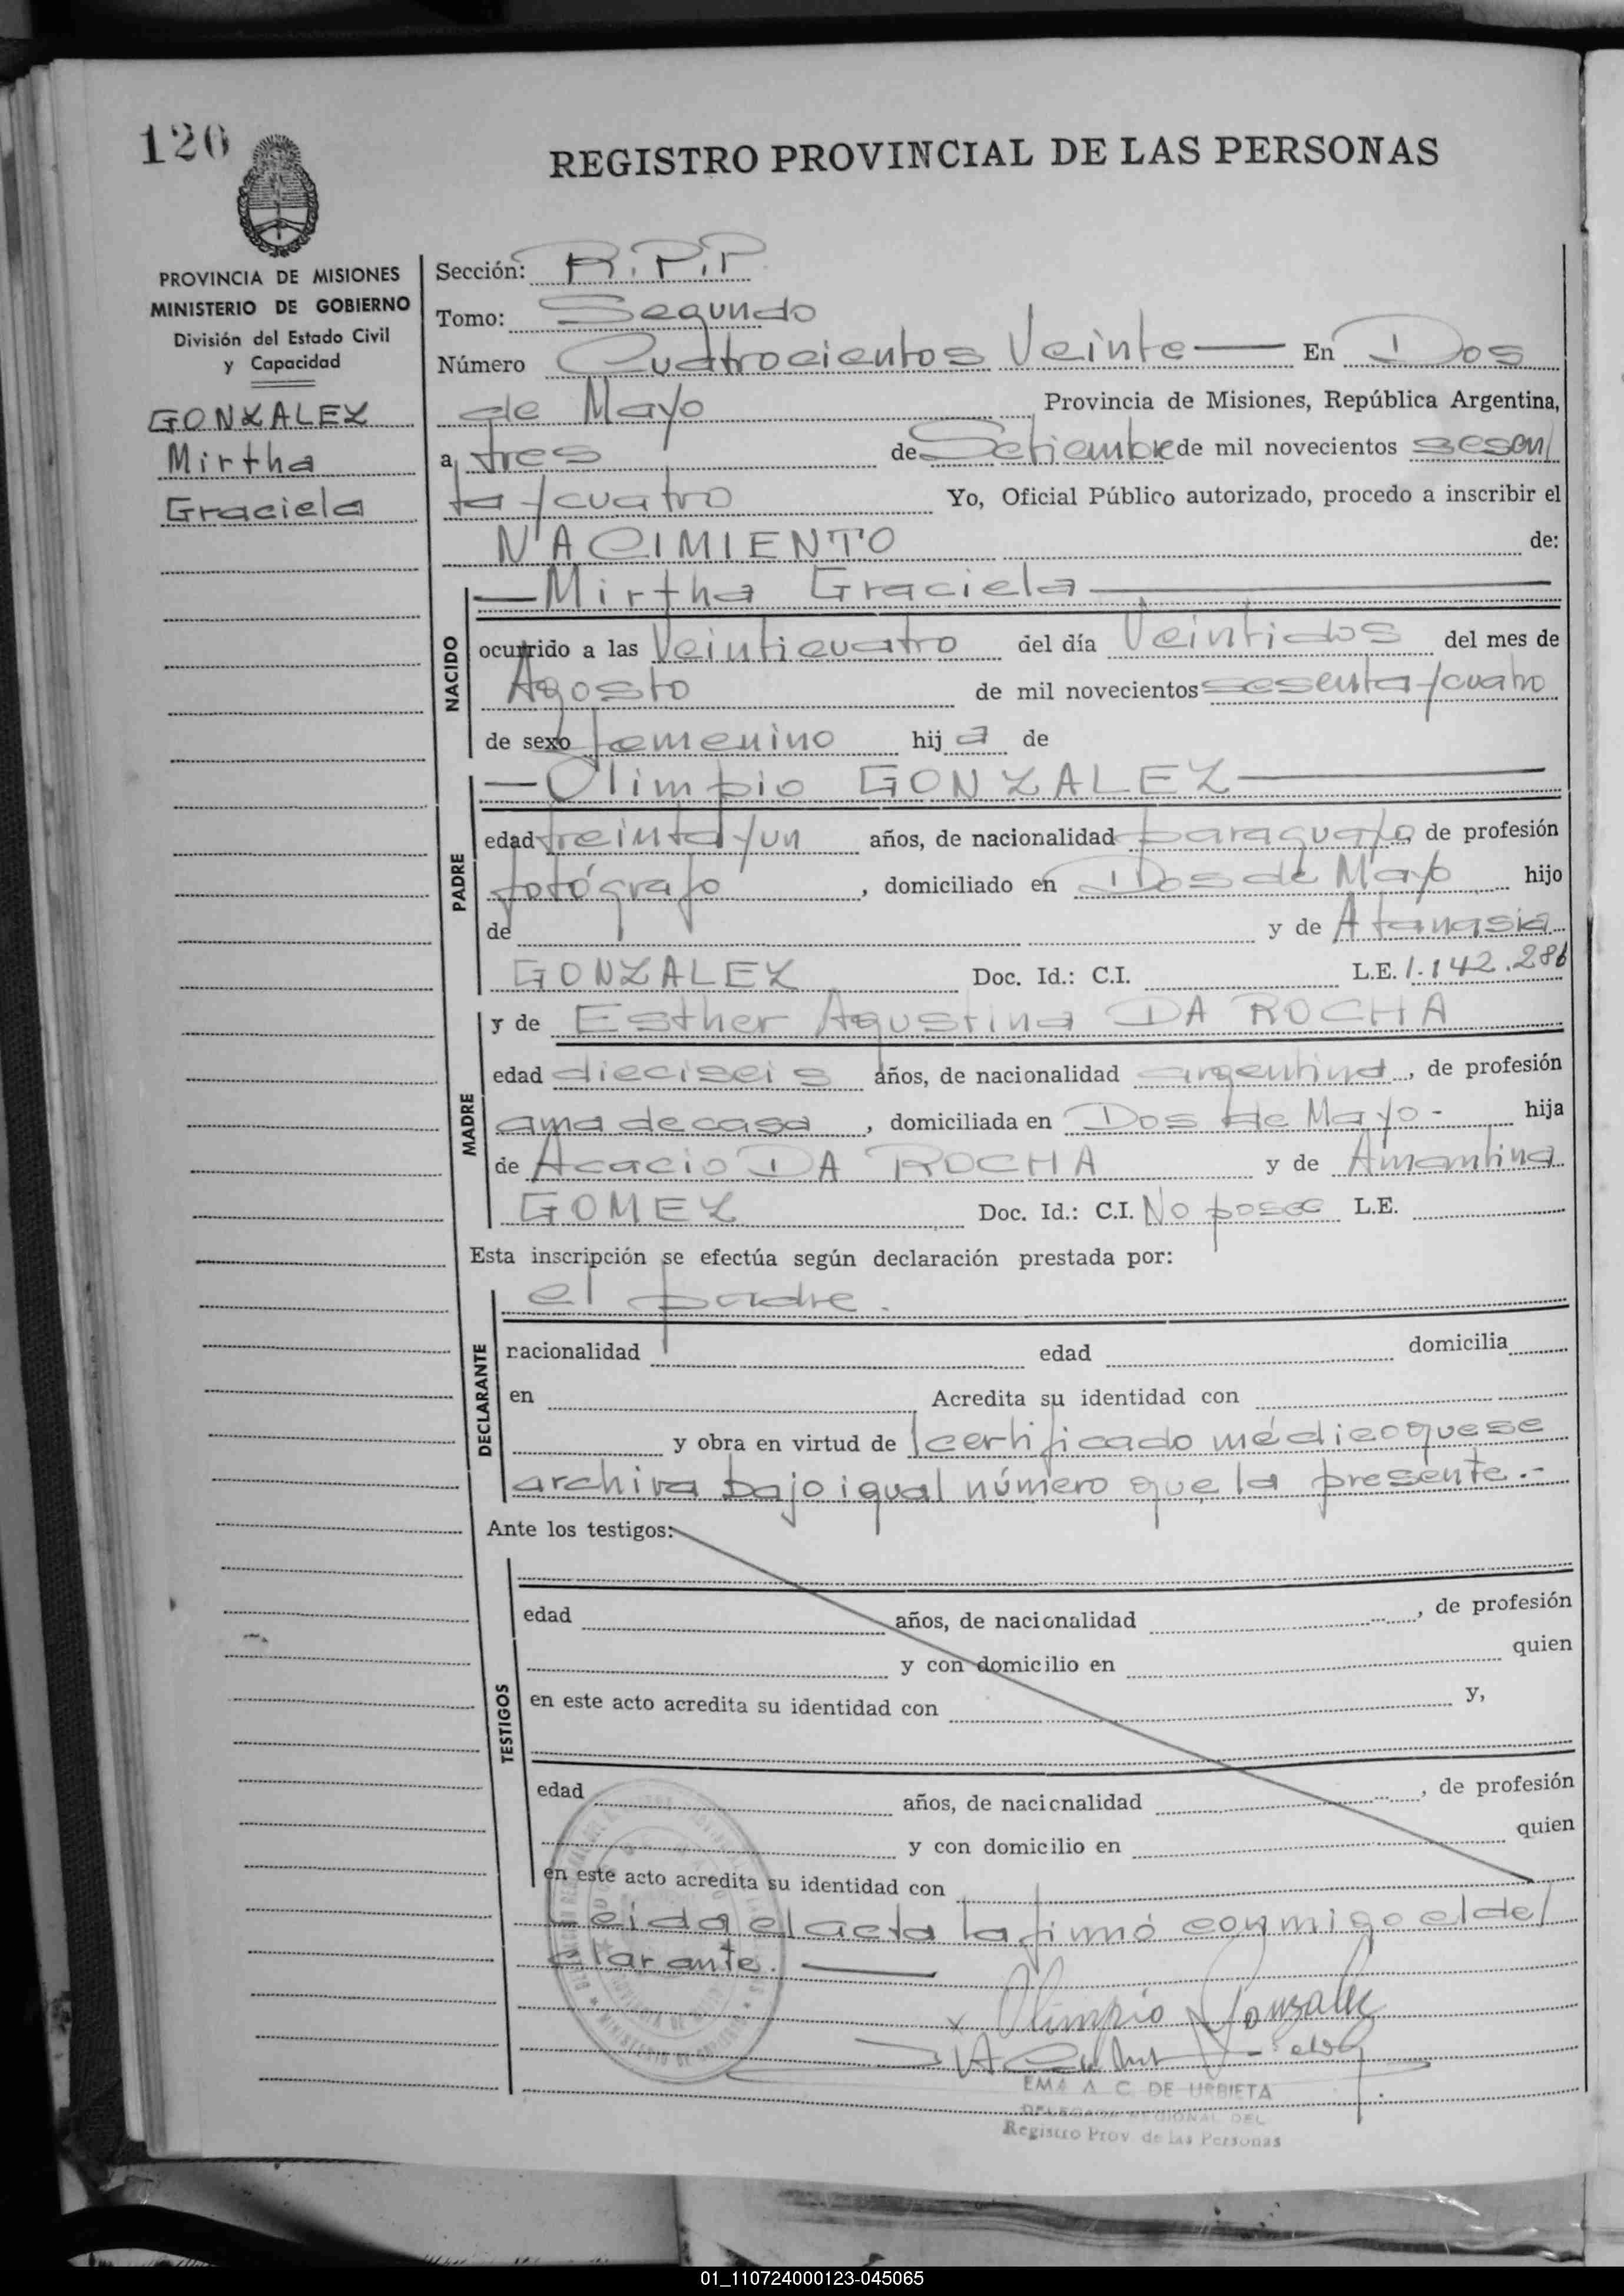 120
REGISTRO PROVINCIAL DE LAS PERSONAS
PROVINCIA DE MISIONES
MINISTERIO DE GOBIERNO
División del Estado Civil
y Capacidad
GONZALEZ
Mirtha
Graciela
Sección: R.P.P
Tomo: Segundo
Número Cuatrocientos Veinte — En Dos
de Mayo Provincia de Misiones, República Argentina,
a tres de Setiembre de mil novecientos sesen/
ta y cuatro Yo, Oficial Público autorizado, procedo a inscribir el
NACIMIENTO de:
NACIDO
— Mirtha Graciela —
ocurrido a las Veinticuatro del día Veintidos del mes de
Agosto de mil novecientos sesenta y cuatro
de sexo femenino hij a de
PADRE
— Olimpio GONZALEZ —
edad treinta y un años, de nacionalidad paraguayo, de profesión
fotógrafo, domiciliado en Dos de Mayo hijo
de y de Atanasia
GONZALEZ Doc. Id.: C.I. L.E. 1.142.286
MADRE
y de Esther Agustina DA ROCHA
edad dieciseis años, de nacionalidad argentina, de profesión
ama de casa, domiciliada en Dos de Mayo - hija
de Acacio DA ROCHA y de Amantina
GOMEZ Doc. Id.: C.I. No posee L.E.
Esta inscripción se efectúa según declaración prestada por:
DECLARANTE
el padre.
nacionalidad edad domicilia
en Acredita su identidad con
y obra en virtud de certificado médico que se
archiva bajo igual número que la presente.-
Ante los testigos:
TESTIGOS
edad años, de nacionalidad , de profesión
y con domicilio en quien
en este acto acredita su identidad con y,
edad años, de nacionalidad , de profesión
y con domicilio en quien
en este acto acredita su identidad con
Leida el acta la firmó conmigo el de/
clarante. —
x Olimpio Gonzalez
EMA A. C. DE URBIETA
DELEGADA REGIONAL DEL
Registro Prov. de las Personas
01_110724000123-045065